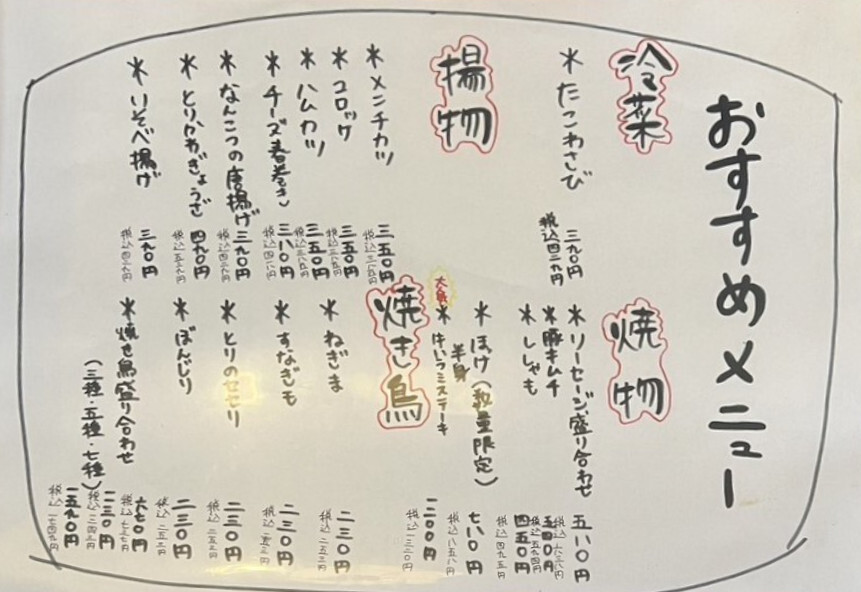 おすすめメニュー
冷菜
*たこわさび 三九〇円
税込四二九円
焼物
*ソーセージ盛り合わせ 五八〇円
税込六三八円
*豚キムチ 五四〇円
税込五九四円
*ししゃも 四五〇円
税込四九五円
*ほっけ(数量限定) 七八〇円
半身
税込八五八円
*牛ハラミステーキ 一二〇〇円
税込一三二〇円
揚物
*メンチカツ 三五〇円
税込三八五円
*コロッケ 三五〇円
税込三八五円
*ハムカツ 三五〇円
税込三八五円
*チーズ春巻き 三八〇円
税込四一八円
*なんこつの唐揚げ 三九〇円
税込四二九円
*とりかわぎょうざ 四九〇円
税込五三九円
*いそべ揚げ 三九〇円
税込四二九円
焼き鳥
*ねぎま 二三〇円
税込二五三円
*すなぎも 二三〇円
税込二五三円
*とりのせせり 二三〇円
税込二五三円
*ぼんじり 二三〇円
税込二五三円
*焼き鳥盛り合わせ 六七〇円
税込七三七円
(三種・五種・七種) 一一三〇円
税込一二四三円
一五九〇円
税込一七四九円